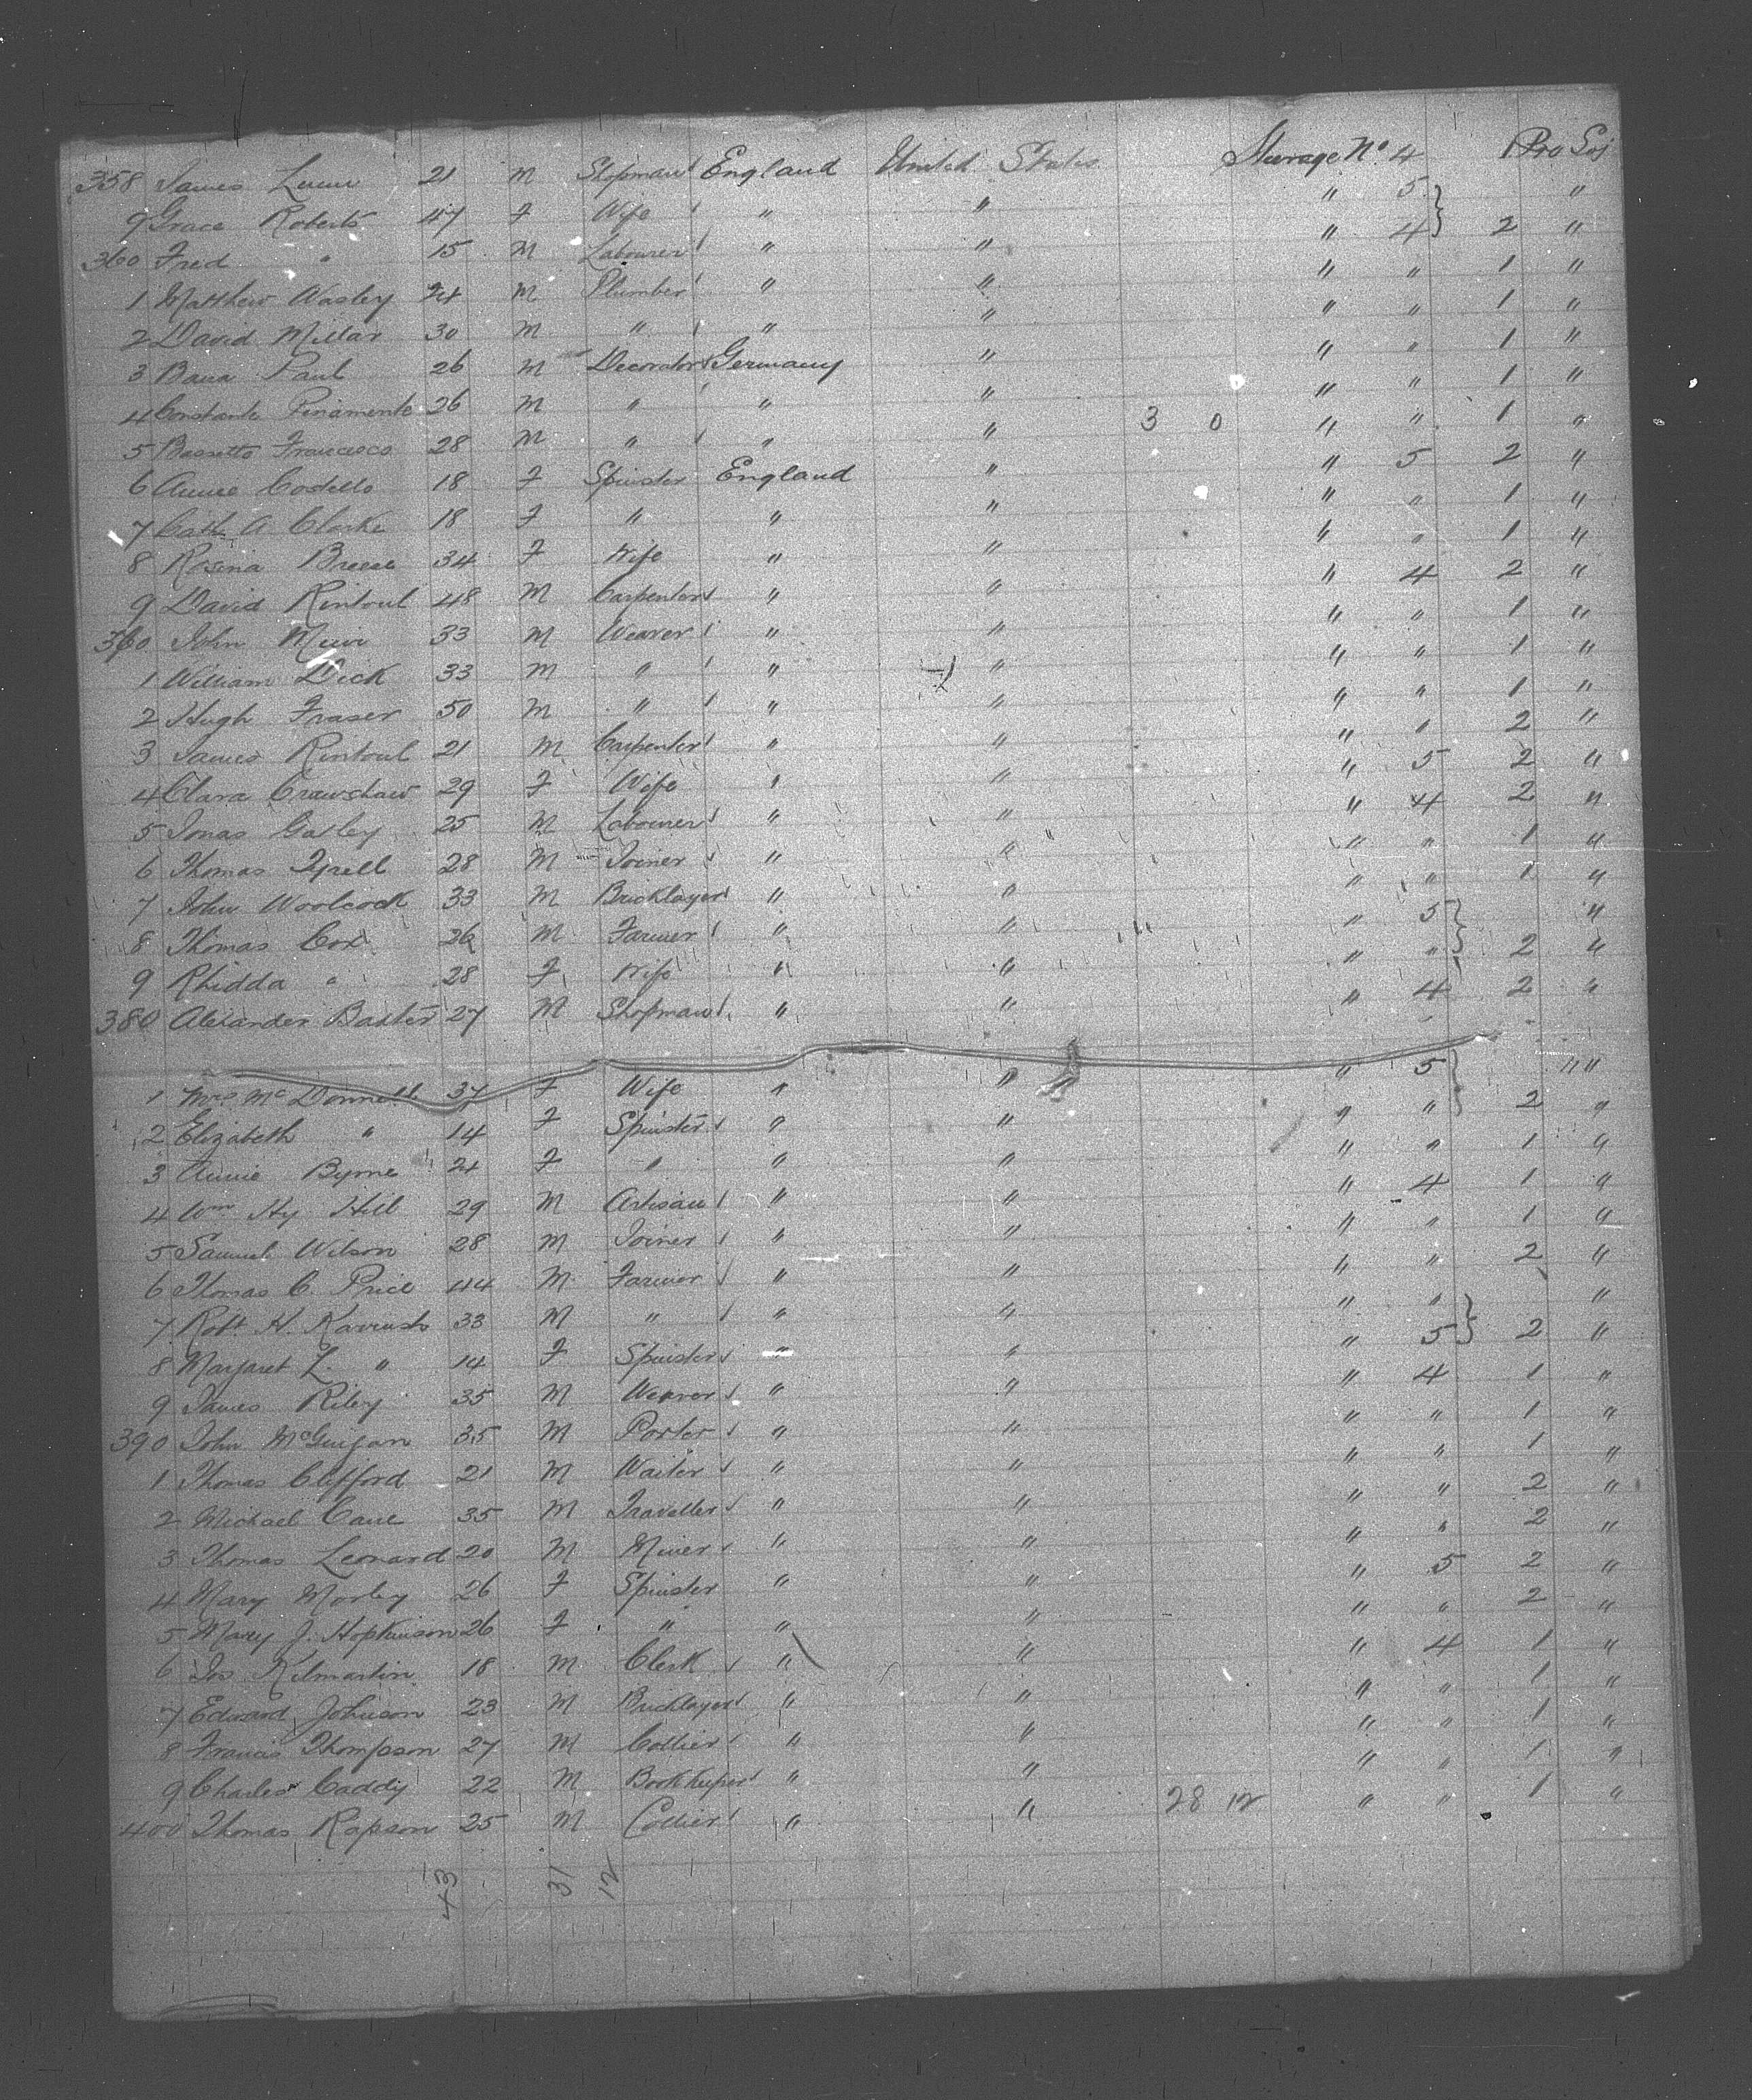 358 James 21 M Shopman England United States Steerage No. 4 1 Pro Soj
9 Grace Roberts 47 F Wife " " " 5 "
360 Fred " 15 M Labourer " " " 4 2 "
1 Matthew Wasley 24 M Plumber " " " " 1 "
2 David Millar 30 M " " " " " 1 "
3 Paul 26 M Decorator Germany " " " 1 "
4 Constante 26 M " " " " " 1 "
5 Bassetto Francesco 28 M " " " 3 0 " " 1 "
6 Annie Costello 18 F Spinster England " " 5 2 "
7 Cath A Clarke 18 F " " " " " 1 "
8 Rosina Breese 34 F Wife " " " " 1 "
9 David Rintoul 48 M Carpenter " " " 4 2 "
360 John Muir 33 M Weaver " " " " 1 "
1 William Dick 33 M " " " " " 1 "
2 Hugh Fraser 50 M " " " " " 1 "
3 James Rintoul 21 M Carpenter " " " " 2 "
4 Clara Crawshaw 29 F Wife " " " 5 2 "
5 Jonas 25 M Labourer " " " 4 2 "
6 Thomas Tyrell 28 M Joiner " " " " 1 "
7 John Woolcock 33 M Bricklayer " " " " 1 "
8 Thomas Cox 26 M Farmer " " " 5 "
9 Rhidda " 28 F Wife " " " " 2 "
380 Alexander Baxter 27 M Shopman " " " 4 2 "
1 Mrs McDonnell 37 F Wife " " " 5 " "
2 Elizabeth " 14 F Spinster " " " " 2 "
3 Annie Byrne 21 F " " " " " 1 "
4 Wm Hy Hill 29 M Artisan " " " 4 1 "
5 Samuel Wilson 28 M Joiner " " " " 1 "
6 Thomas C. Price 44 M Farmer " " " " 2 "
7 Robt H. 33 M " " " " " "
8 Margaret L. " 14 F Spinster " " " 5 2 "
9 James Riley 35 M Weaver " " " 4 1 "
390 John McGuigan 35 M Porter " " " " 1 "
1 Thomas Clifford 21 M Waiter " " " " 1 "
2 Michael Cane 35 M Traveller " " " " 2 "
3 Thomas Leonard 20 M Miner " " " " 2 "
4 Mary Morley 26 F Spinster " " " 5 2 "
5 Mary J. Hopkinson 26 F " " " " " 2 "
6 Jos Kilmartin 18 M Clerk " " " 4 1 "
7 Edward Johnson 23 M Bricklayer " " " " 1 "
8 Francis Thompson 27 M Collier " " " " 1 "
9 Charles Caddy 22 M Bookkeeper " " " " 1 "
400 Thomas Rapson 25 M Collier " " 28 12 " " 1 "
43 31 12